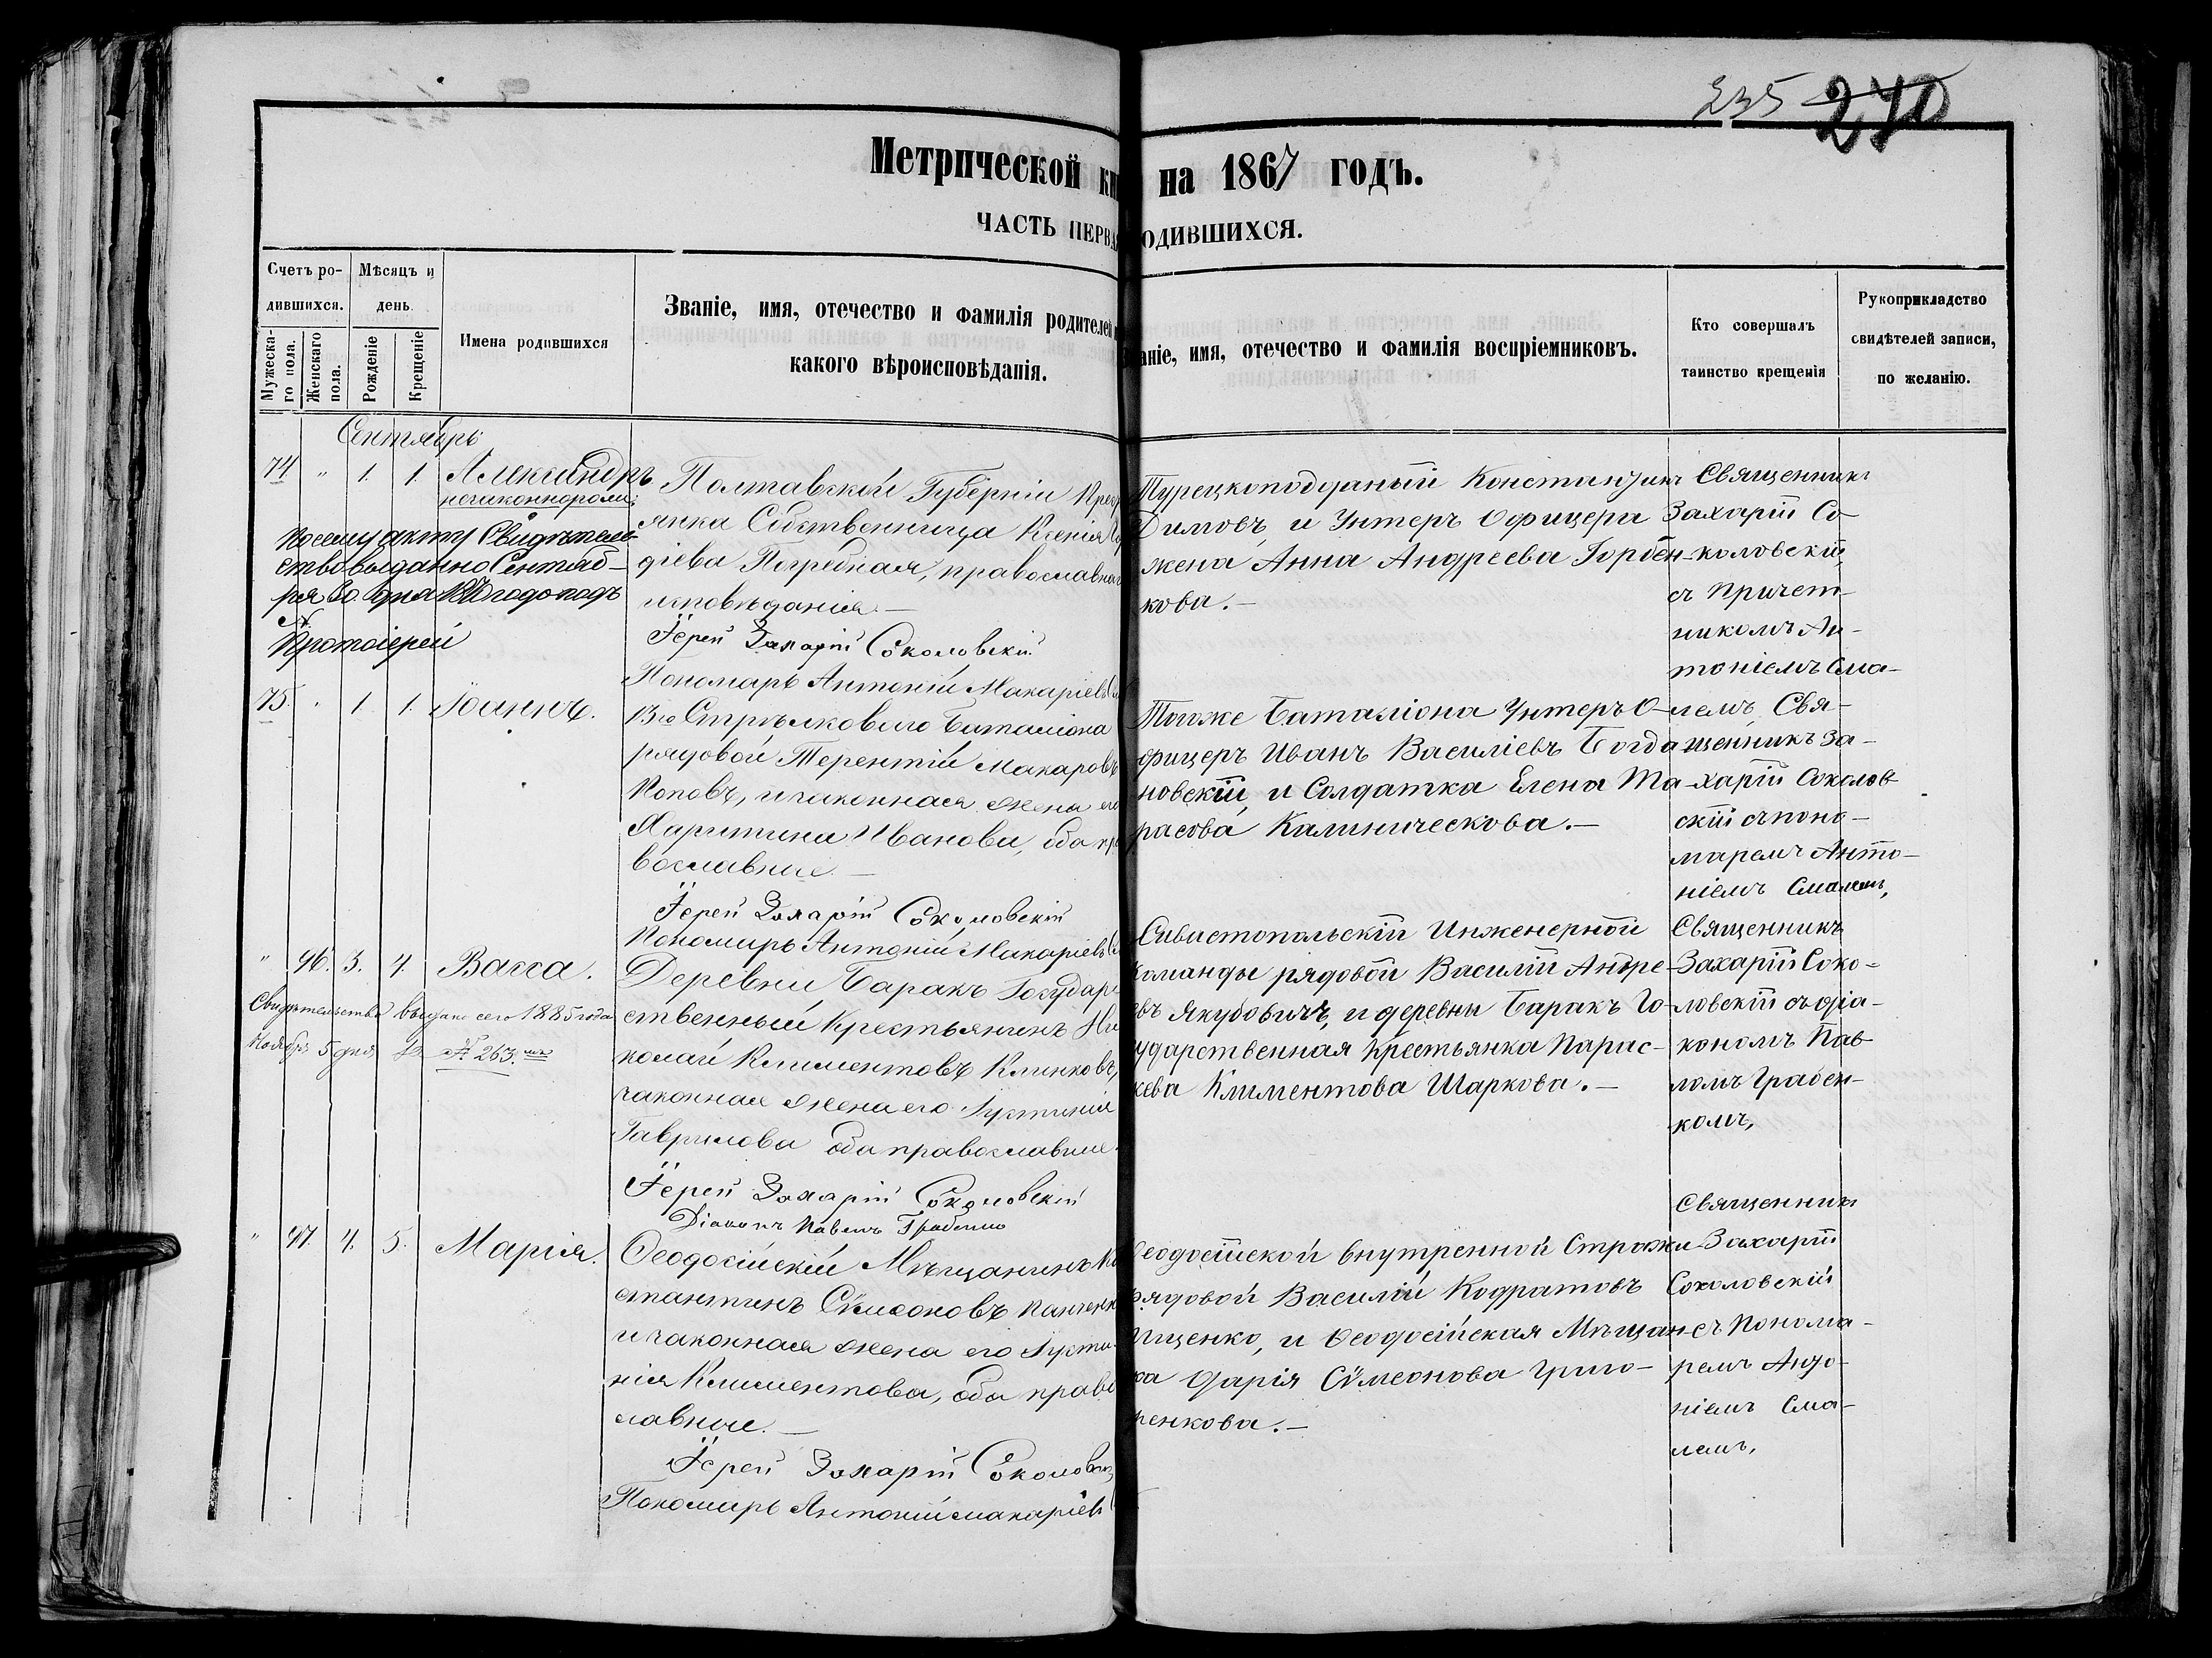 235 270
Метрической кн на 1867 годъ.
ЧАСТЬ ПЕРВА ОДИВШИХСЯ.
Счетъ ро-
дившихся.
Мужеска-
го пола.
Женскаго
пола.
Мѣсяцъ и
день
Рожденіе
Крещеніе
Имена родившихся
Званіе, имя, отечество и фамилія родителей
какого вѣроисповѣданія.
аніе, имя, отечество и фамилія воспріемниковъ.
Кто совершалъ
таинство крещенія
Рукоприкладство
свидѣтелей записи,
по желанію.
Сентябрь
74 " 1. 1. Александръ
незаконнорожд:
По сему акту Свидѣтель-
ство выданно Сентяб-
ря 20 дня года подъ
№
Протоіерей
Полтавской Губерніи
янка Собственница Ксенія
діева Погребная, православнаго
исповѣданія.—
Іерей Захарій Соколовскій
Пономарь Антоній Макаріевъ
Турецкоподданый Константинъ
Димовъ, и Унтеръ Офицера
жена Анна Андреева Горбен-
кова.—
Священникъ
Захарій Со-
коловскій,
съ Причет-
никомъ Ан-
тоніемъ Сма-
лемъ,
75. " 1. 1. Іоаннъ.
13го Стрѣлковаго Баталіона
рядовой Терентій Макаровъ
Поповъ, и законная жена его
Харитина Иванова, оба пра
вославные.—
Іерей Захарій Соколовскій
Пономарь Антоній Макаріевъ
Тогоже Баталіона Унтеръ О-
фицеръ Иванъ Василіевъ Богда-
новскій, и Солдатка Елена Та-
расова Калиническова.—
Свя-
щенникъ За-
харій Соколов-
скій съ поно-
маремъ Анто-
ніемъ Смалемъ,
" 46. 3. 4. Васса.
Свидѣтельство выдано сего 1885 года
Ноября 5 дня за № 263.
Деревни Баракъ Государ
ственный Крестьянинъ Ни
колай Климентовъ Клинковъ,
законная жена его Іустинія
Гаврилова оба православные.
Іерей Захарій Соколовскій
Діаконъ Павелъ Грабенко
Сивастопольскій Инженерной
Команды рядовой Василій Андре-
евъ Якубовичъ, и деревни Баракъ Го-
сударственная Крестьянка Парас-
кева Климентова Шаркова.—
Священникъ
Захарій Соко-
ловскій съ діа-
кономъ Пав-
ломъ Грабен-
комъ,
" 47. 4. 5. Марія.
Ѳеодосійскій Мѣщанинъ Ко
стантинъ Сѵмеоновъ
и законная жена его Іусти-
нія Климентова, оба право
славные.—
Іерей Захарій Соколовск
Пономарь Антоній Макаріевъ
Ѳеодосійской внутренной Стражи
рядовой Василій Кодратовъ
ищенко, и Ѳеодосійская Мѣщан-
ка Дарія Сѵмеонова Григо-
ренкова.—
Священникъ
Захарій
Соколовскій
съ Понома-
ремъ Анто-
ніемъ Сма-
лемъ,